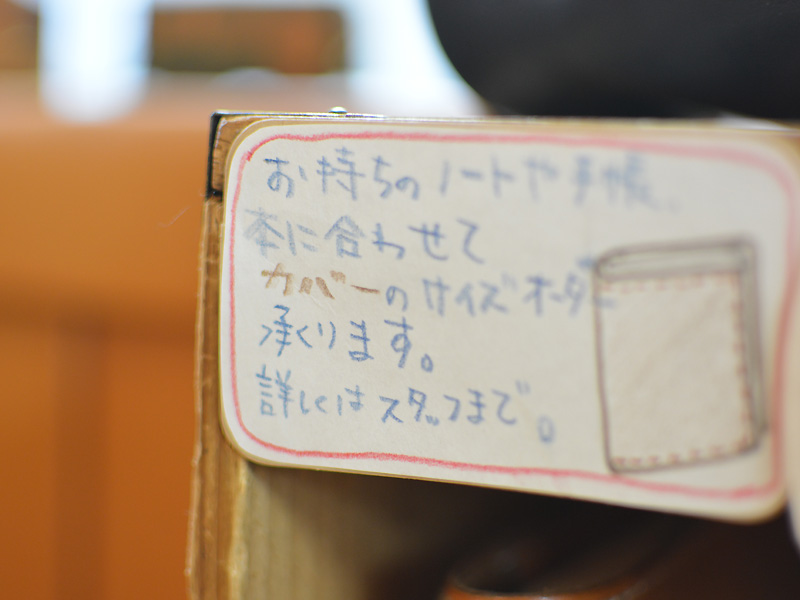 お持ちのノートや手帳、
本に合わせて
カバーのサイズオーダー
承ります。
詳しくはスタッフまで。